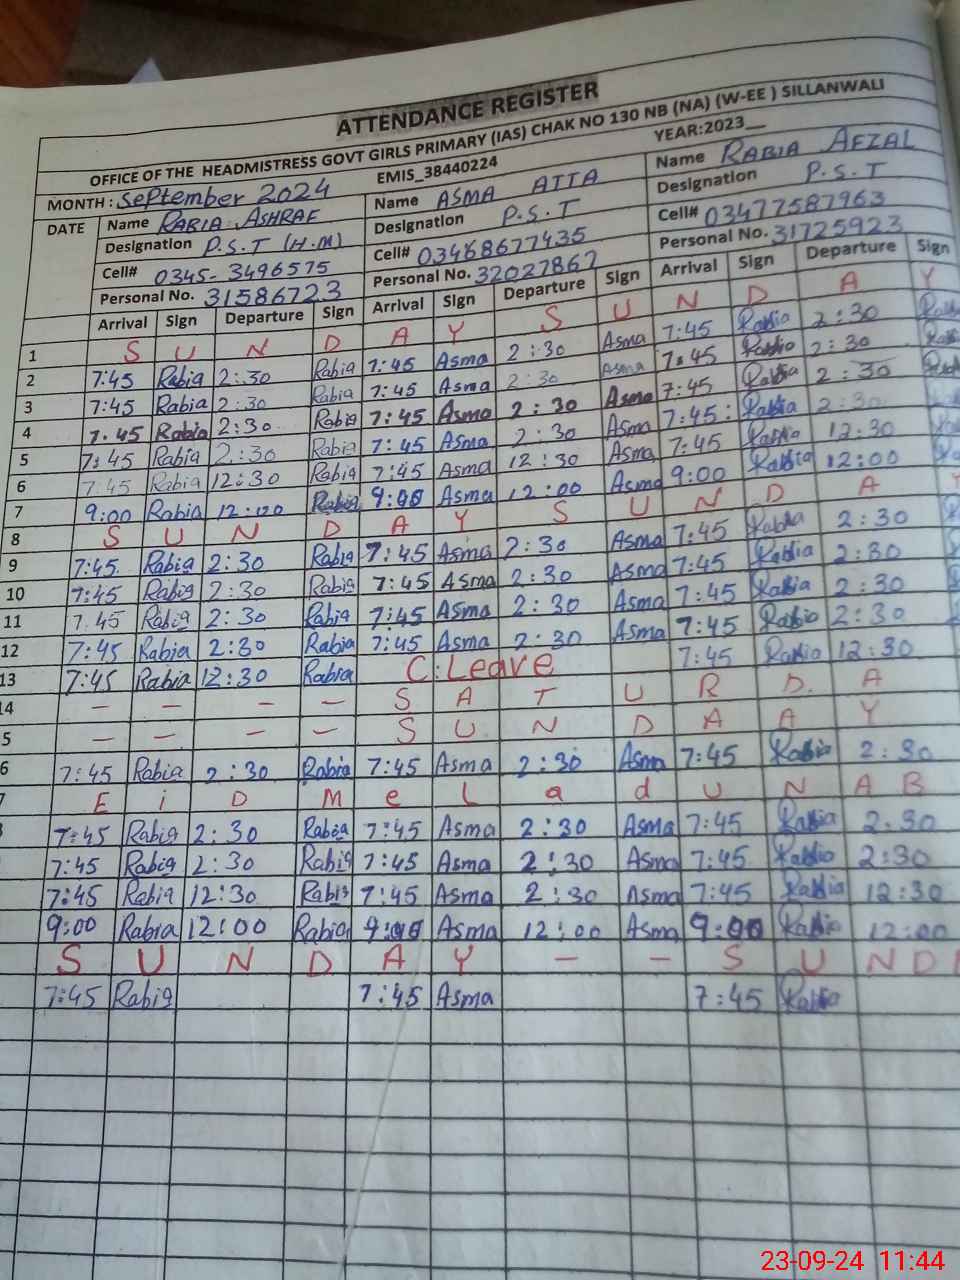 ATTENDANCE REGISTER
OFFICE OF THE HEADMISTRESS GOVT GIRLS PRIMARY (IAS) CHAK NO 130 NB (NA) (W-EE ) SILLANWALI
MONTH : September 2024 EMIS_38440224 YEAR:2023__
DATE Name RABIA ASHRAF Name ASMA ATTA Name RABIA AFZAL
Designation P.S.T (H.M) Designation P.S.T Designation P.S.T
Cell# 0345-3496575 Cell# 03468677435 Cell# 03477587963
Personal No. 31586723 Personal No. 32027867 Personal No. 31725923
Arrival Sign Departure Sign Arrival Sign Departure Sign Arrival Sign Departure Sign
1 S U N D A Y S U N D A Y
2 7:45 Rabia 2:30 Rabia 7:45 Asma 2:30 Asma 7:45 Rabia 2:30 Rabia
3 7:45 Rabia 2:30 Rabia 7:45 Asma 2:30 Asma 7:45 Rabia 2:30
4 7.45 Rabia 2:30 Rabia 7:45 Asma 2:30 Asma 7:45 Rabia 2:30
5 7:45 Rabia 2:30 Rabia 7:45 Asma 2:30 Asma 7:45 Rabia 2:30
6 7:45 Rabia 12:30 Rabia 7:45 Asma 12:30 Asma 7:45 Rabia 12:30
7 9:00 Rabia 12:00 Rabia 9:00 Asma 12:00 Asma 9:00 Rabia 12:00
8 S U N D A Y S U N D A Y
9 7:45 Rabia 2:30 Rabia 7:45 Asma 2:30 Asma 7:45 Rabia 2:30
10 7:45 Rabia 2:30 Rabia 7:45 Asma 2:30 Asma 7:45 Rabia 2:30
11 7.45 Rabia 2:30 Rabia 7:45 Asma 2:30 Asma 7:45 Rabia 2:30
12 7:45 Rabia 2:30 Rabia 7:45 Asma 2:30 Asma 7:45 Rabia 2:30
13 7:45 Rabia 12:30 Rabia C.Leave 7:45 Rabia 12:30
14 – – – – S A T U R D. A
5 – – – – S U N D A A Y
6 7:45 Rabia 2:30 Rabia 7:45 Asma 2:30 Asma 7:45 Rabia 2:30
7 E i D M e L a d U N A B
7:45 Rabia 2:30 Rabia 7:45 Asma 2:30 Asma 7:45 Rabia 2.30
7:45 Rabia 2:30 Rabia 7:45 Asma 2:30 Asma 7:45 Rabia 2:30
7:45 Rabia 12:30 Rabia 7:45 Asma 2:30 Asma 7:45 Rabia 12:30
9:00 Rabia 12:00 Rabia 9:00 Asma 12:00 Asma 9:00 Rabia 12:00
S U N D A Y – – S U N D
7:45 Rabia 7:45 Asma 7:45 Rabia
23-09-24 11:44